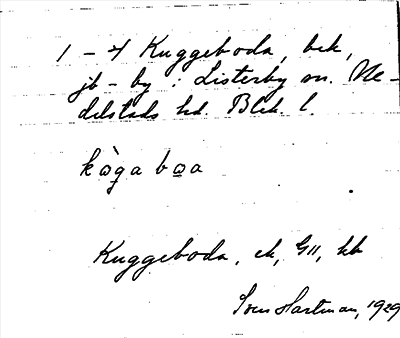 1 – 4 Kuggeboda, bek,
jb - by i Listerby sn. Me-
delstads hd. Blek. l.
kò̱g̱a bo̱a
Kuggeboda, ek, GII, kk
Sven Hartman, 1929